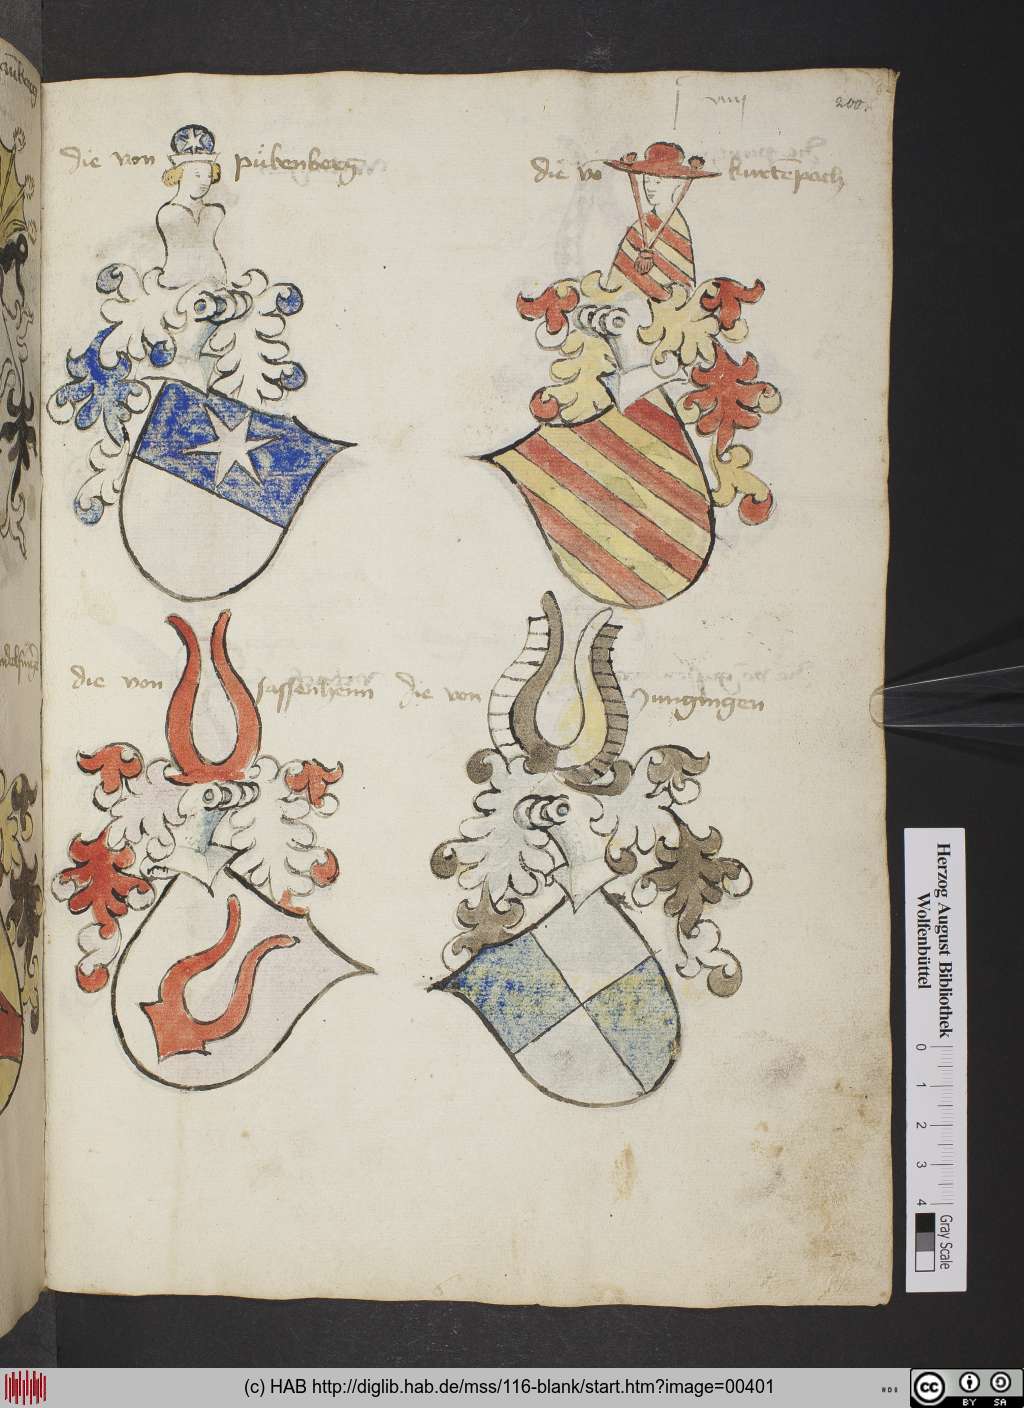 200.
die von pübenberg
die vō kurtēpach
die von sassenheim
die von Jungingen
Herzog August Bibliothek
Wolfenbüttel
0 1 2 3 4
Gray Scale
(c) HAB http://diglib.hab.de/mss/116-blank/start.htm?image=00401
cc BY SA